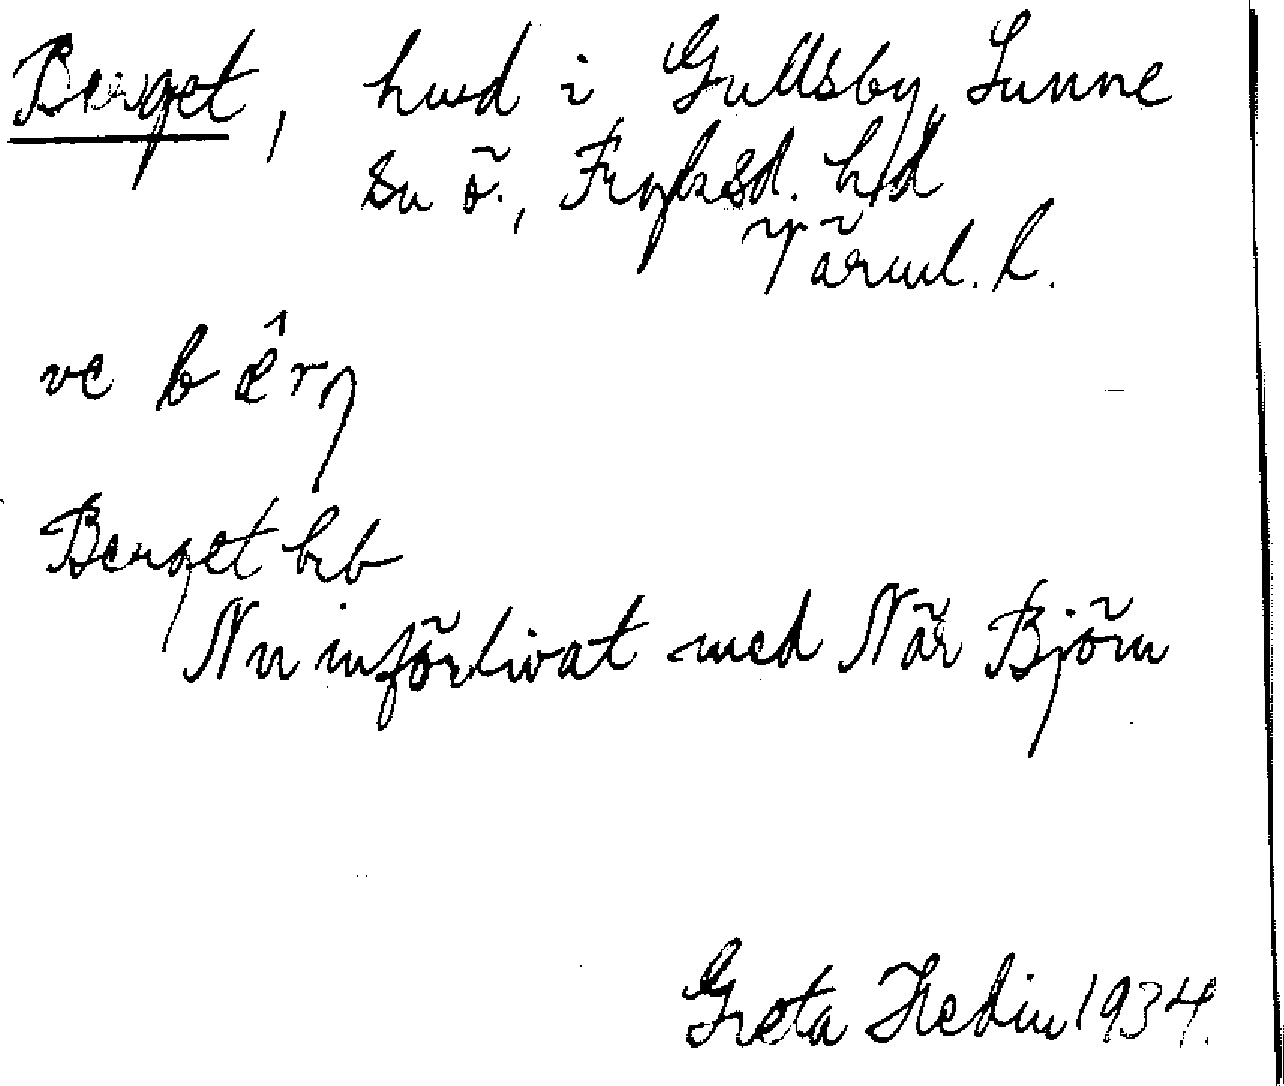 Berget, hmd i Gullsby, Sunne
sn ö., Fryksd. hd
Värml. l.
ve bæ̂rj
Berget hb
Nu införlivat med När Björn
Greta Hedin 1934.